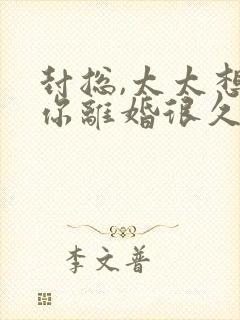 封总,太太想
你離婚很久
李文普